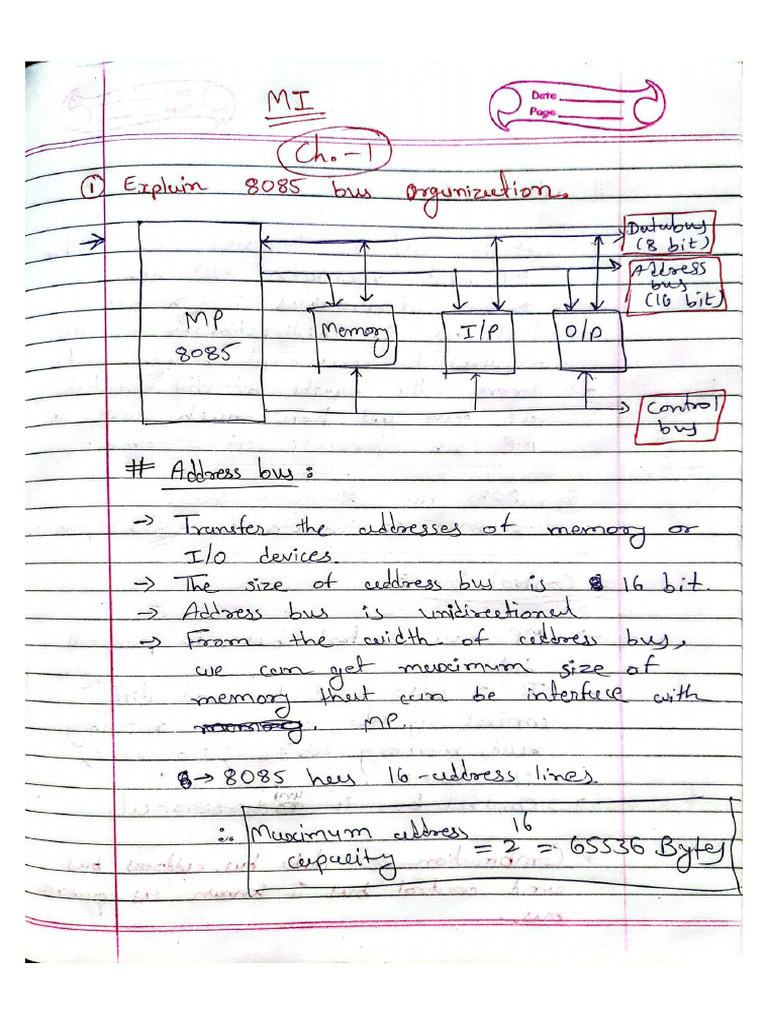 MI
Date
Page
Ch.-1
① Explain 8085 bus organization.
→
Databus
(8 bit)
Address
bus
(16 bit)
MP
8085
Memory
I/P
O/P
Control
bus
# Address bus:
→ Transfer the addresses of memory or
I/O devices.
→ The size of address bus is 16 bit.
→ Address bus is unidirectional
→ From the width of address bus,
we can get maximum size of
memory that can be interface with
MP.
→ 8085 has 16-address lines.
∴ Maximum address capacity = 2^16 = 65536 Bytes